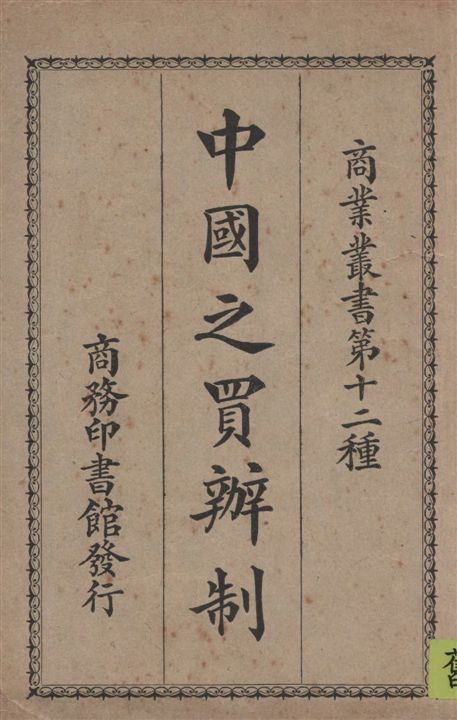 商業叢書第十二種
中國之買辦制
商務印書館發行
舊